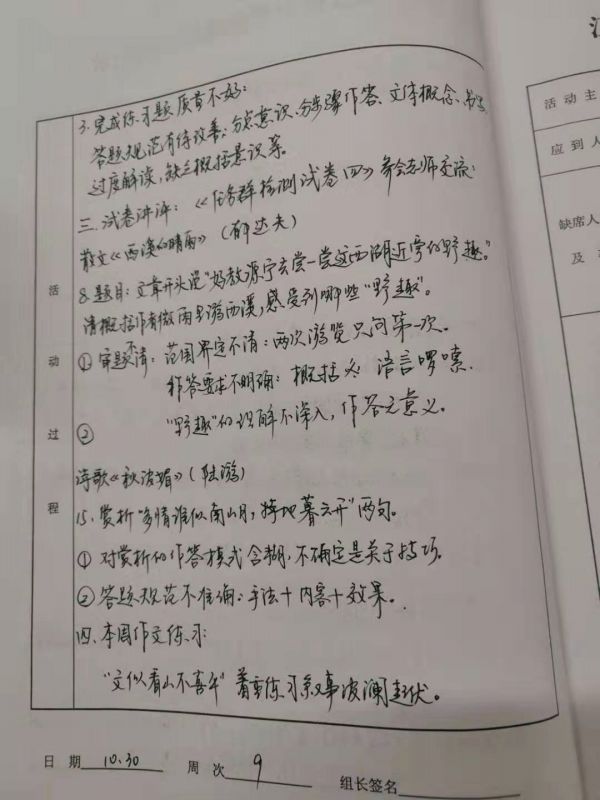 3.完成练习题质量不好:
答题规范有待改善:分点意识、分步骤作答、文体概念、书写
过度解读,缺乏概括意识等。
三.试卷讲评:《任务群检测试卷四》参会老师交流:
散文《西溪的晴雨》(郁达夫)
8.题目:文章开头说"好教源宁去尝一尝这西湖近旁的野趣。"
请概括作者微雨里游西溪,感受到哪些"野趣"。
①审题不清:范围界定不清:两次游览只问第一次。
作答要求不明确:概括 语言啰嗦.
② "野趣"的理解不深入,作答无意义。
诗歌《秋波媚》(陆游)
15.赏析"多情谁似南山月,特地暮云开"两句。
①对赏析的作答模式含糊,不确定是关于技巧.
②答题规范不准确:手法+内容+效果。
四.本周作文练习:
"文似看山不喜平"着重练习叙事波澜起伏。
活动过程
日期 10.30 周次 9 组长签名
活动主
应到人
缺席人
及